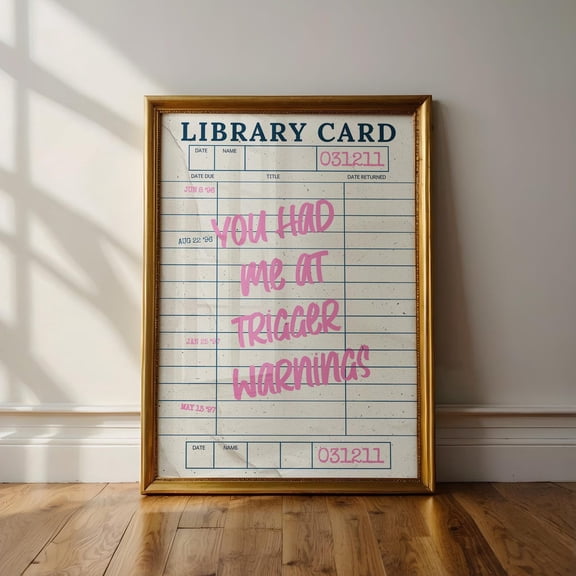 LIBRARY CARD
DATE NAME 031211
DATE DUE TITLE DATE RETURNED
JUN 6 '96
YOU HAD
AUG 22 '96
ME AT
TRIGGER
JAN 25 '97
WARNINGS
MAY 13 '97
DATE NAME 031211